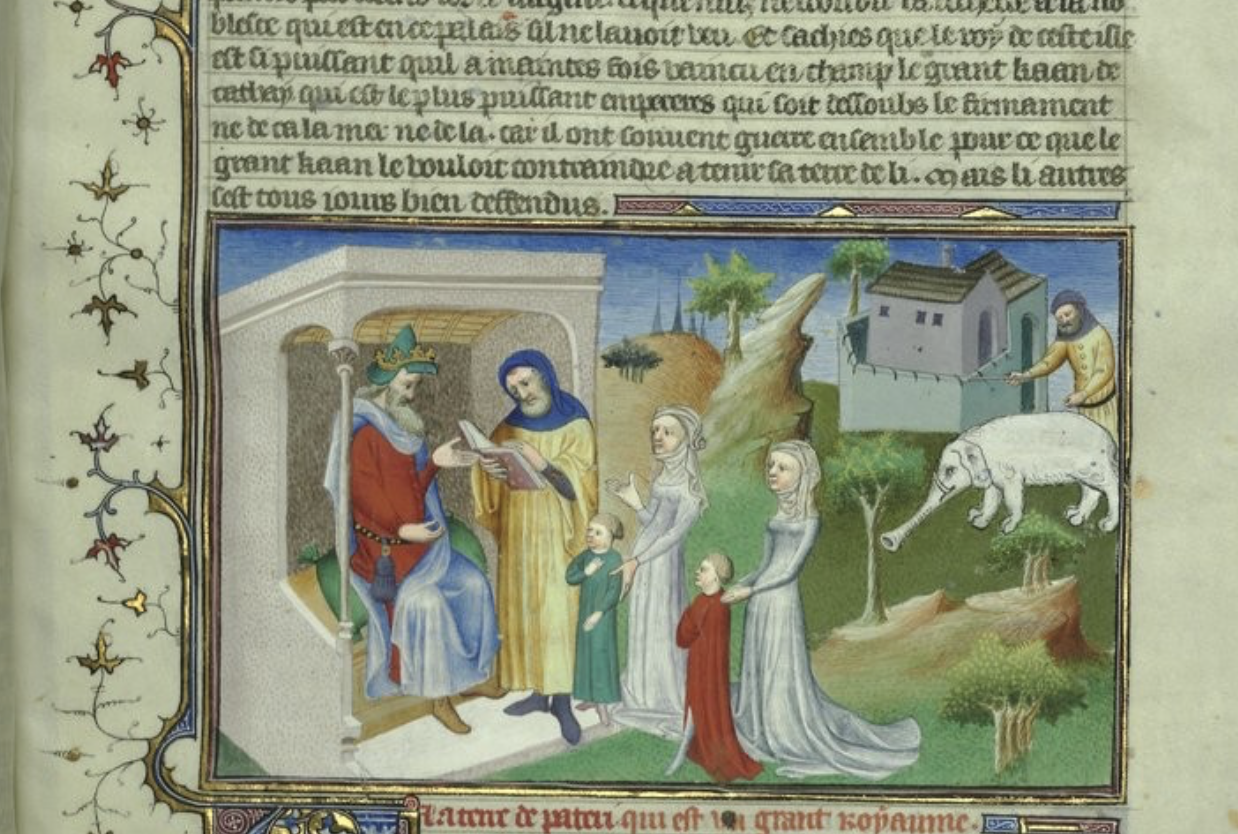 blesce qui est en ce palais sil ne lauoit veu. Et sachies que le roy de ceste isle
est si puissant quil a maintes fois vaincu en champ le grant kaan de
cathay qui est le plus puissant emperere qui soit dessoubs le firmament
ne de ca la mer ne de la. car il ont souuent guerre ensemble pour ce que le
grant kaan le vouloit contraindre a tenir sa terre de li. Mais li autres
sest tous iours bien deffendus.
La terre de paten qui est un grant royaume.